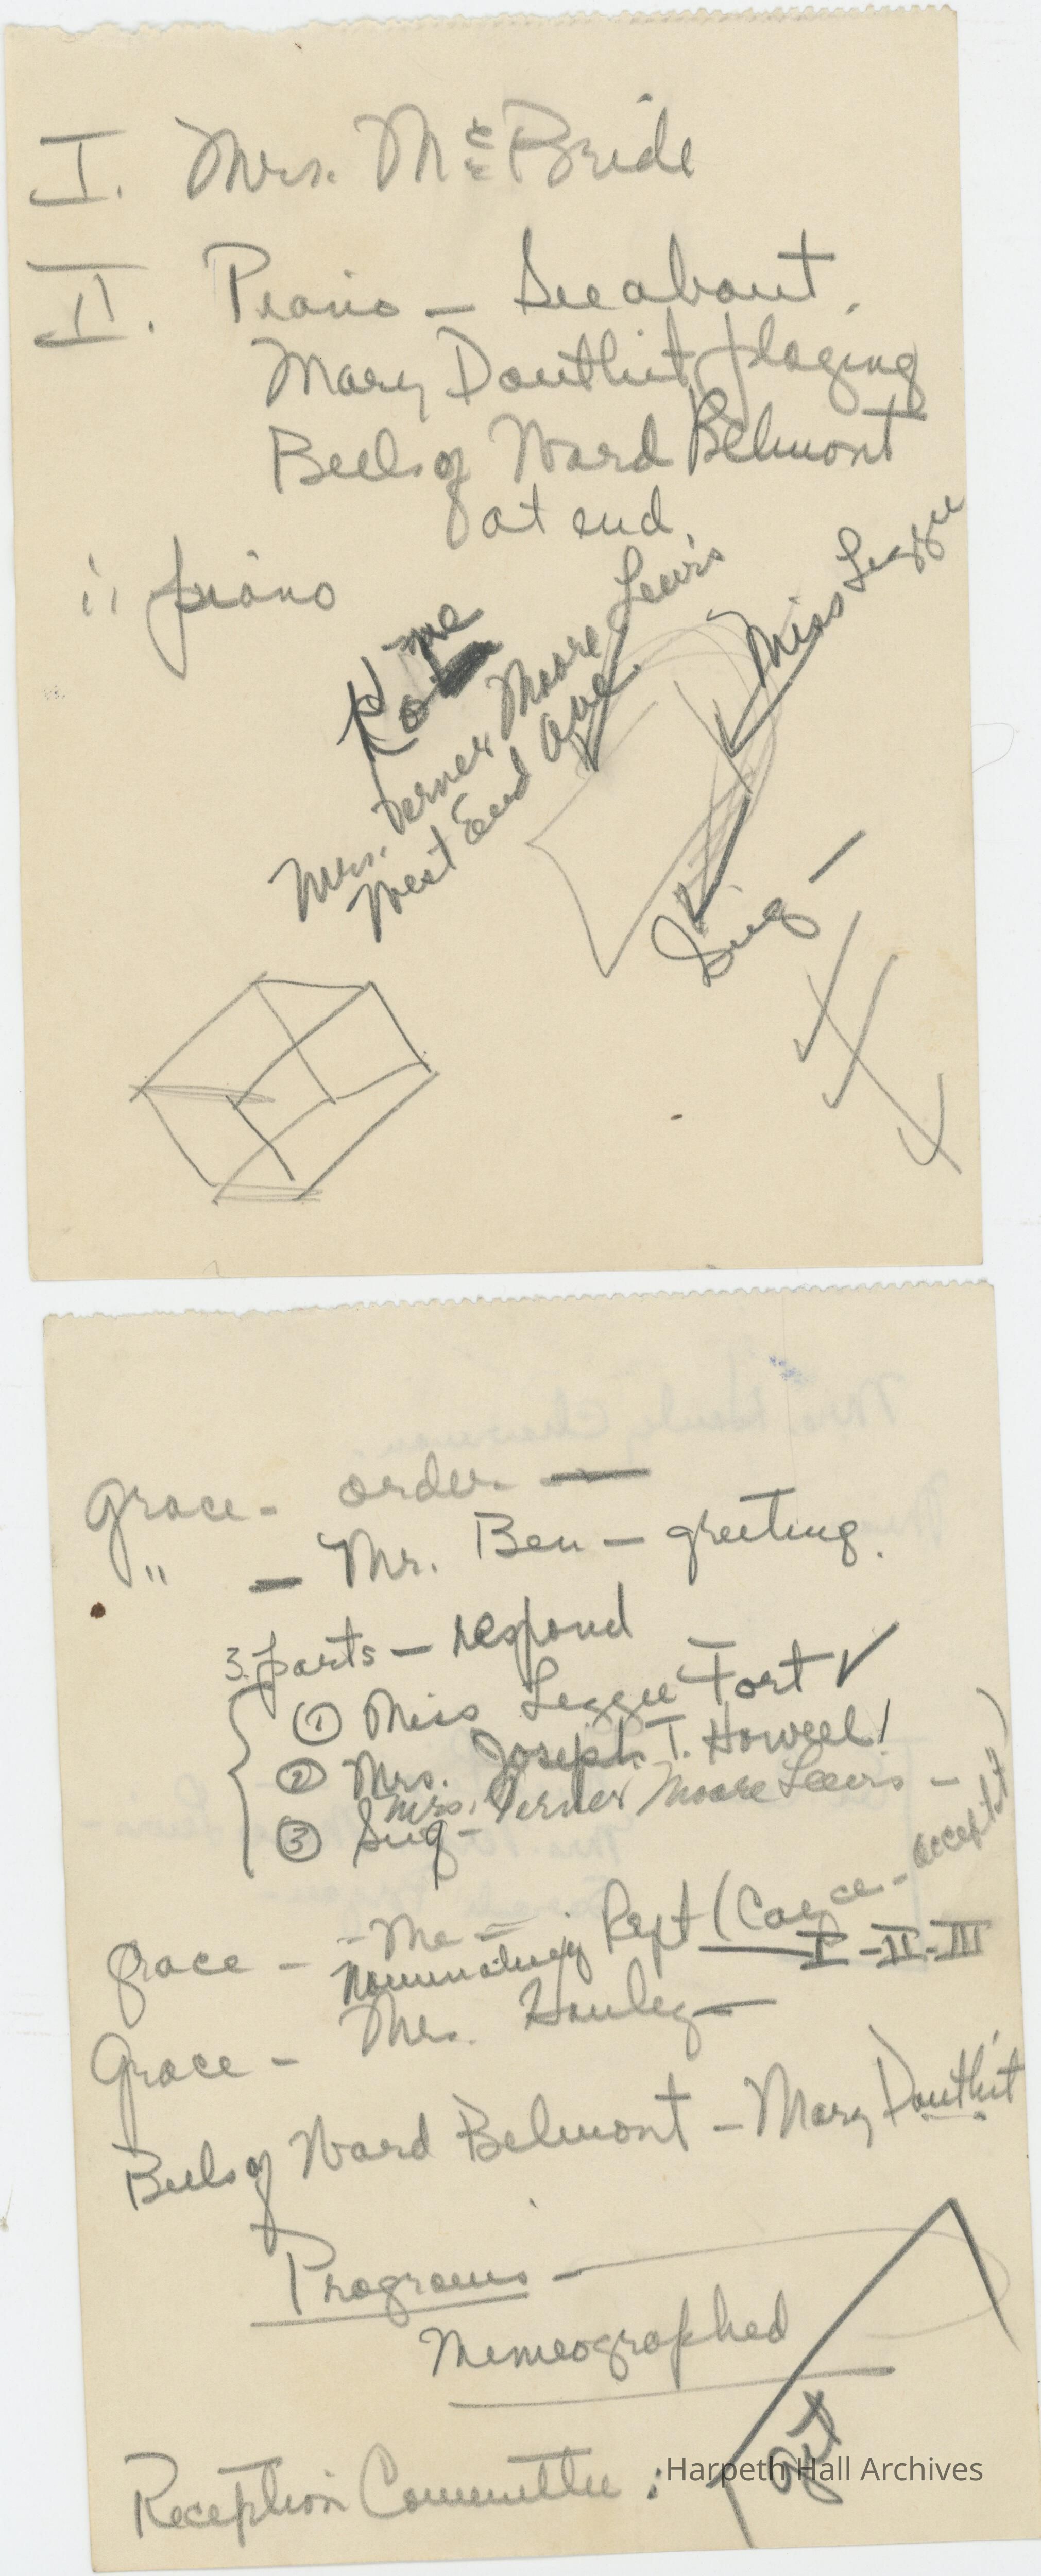 I. Mrs. McBride
II. Piano — See about
Mary Douthit playing
Bells of Ward Belmont
at end.
ii piano
me
Mrs. Verner Moore Lewis
West End Ave.
Miss Leggee
Sing —
Grace - order —
" — Mr. Ben — greeting.
3 parts — respond
① Miss Leggee Fort ✓
② Mrs. Joseph T. Howell!
Mrs. Verner Moore Lewis —
③ Sing -
Grace — - Me -
Nominating Rept ( - accept it)
I - II - III
Grace - Mrs. —
Bells of Ward Belmont — Mary Douthit
Programs —
Memeographed
Reception Committee :
Harpeth Hall Archives